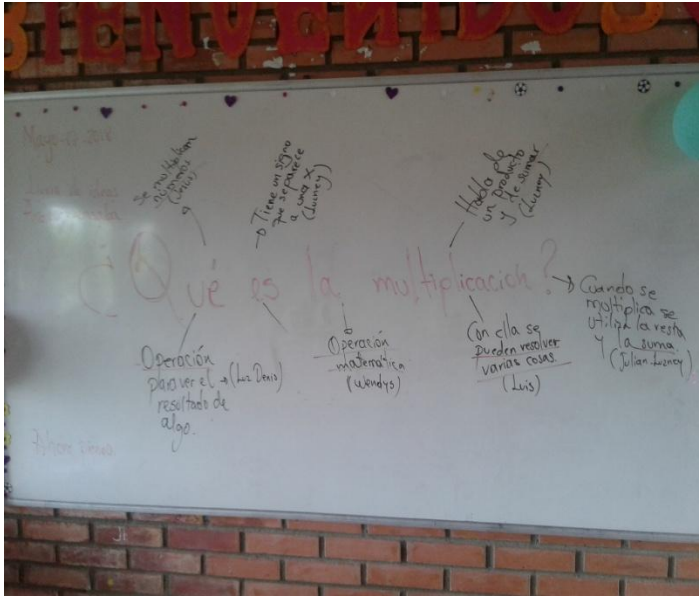 BIENVENIDOS
Mayo
2018
Se multiplican
números
Tiene un signo
que se parece
a una x
(Lucney)
Habla de
un producto
y de sumar
(Lucney)
¿Qué es la multiplicacion?
Cuando se
multiplica se
utiliza la resta
y la suma
(Julian-Lucney)
Operación
para ver el → (Luz Denis)
resultado de
algo.
Operación
matemática
(Wendys)
Con ella se
pueden resolver
varias cosas
(Luis)